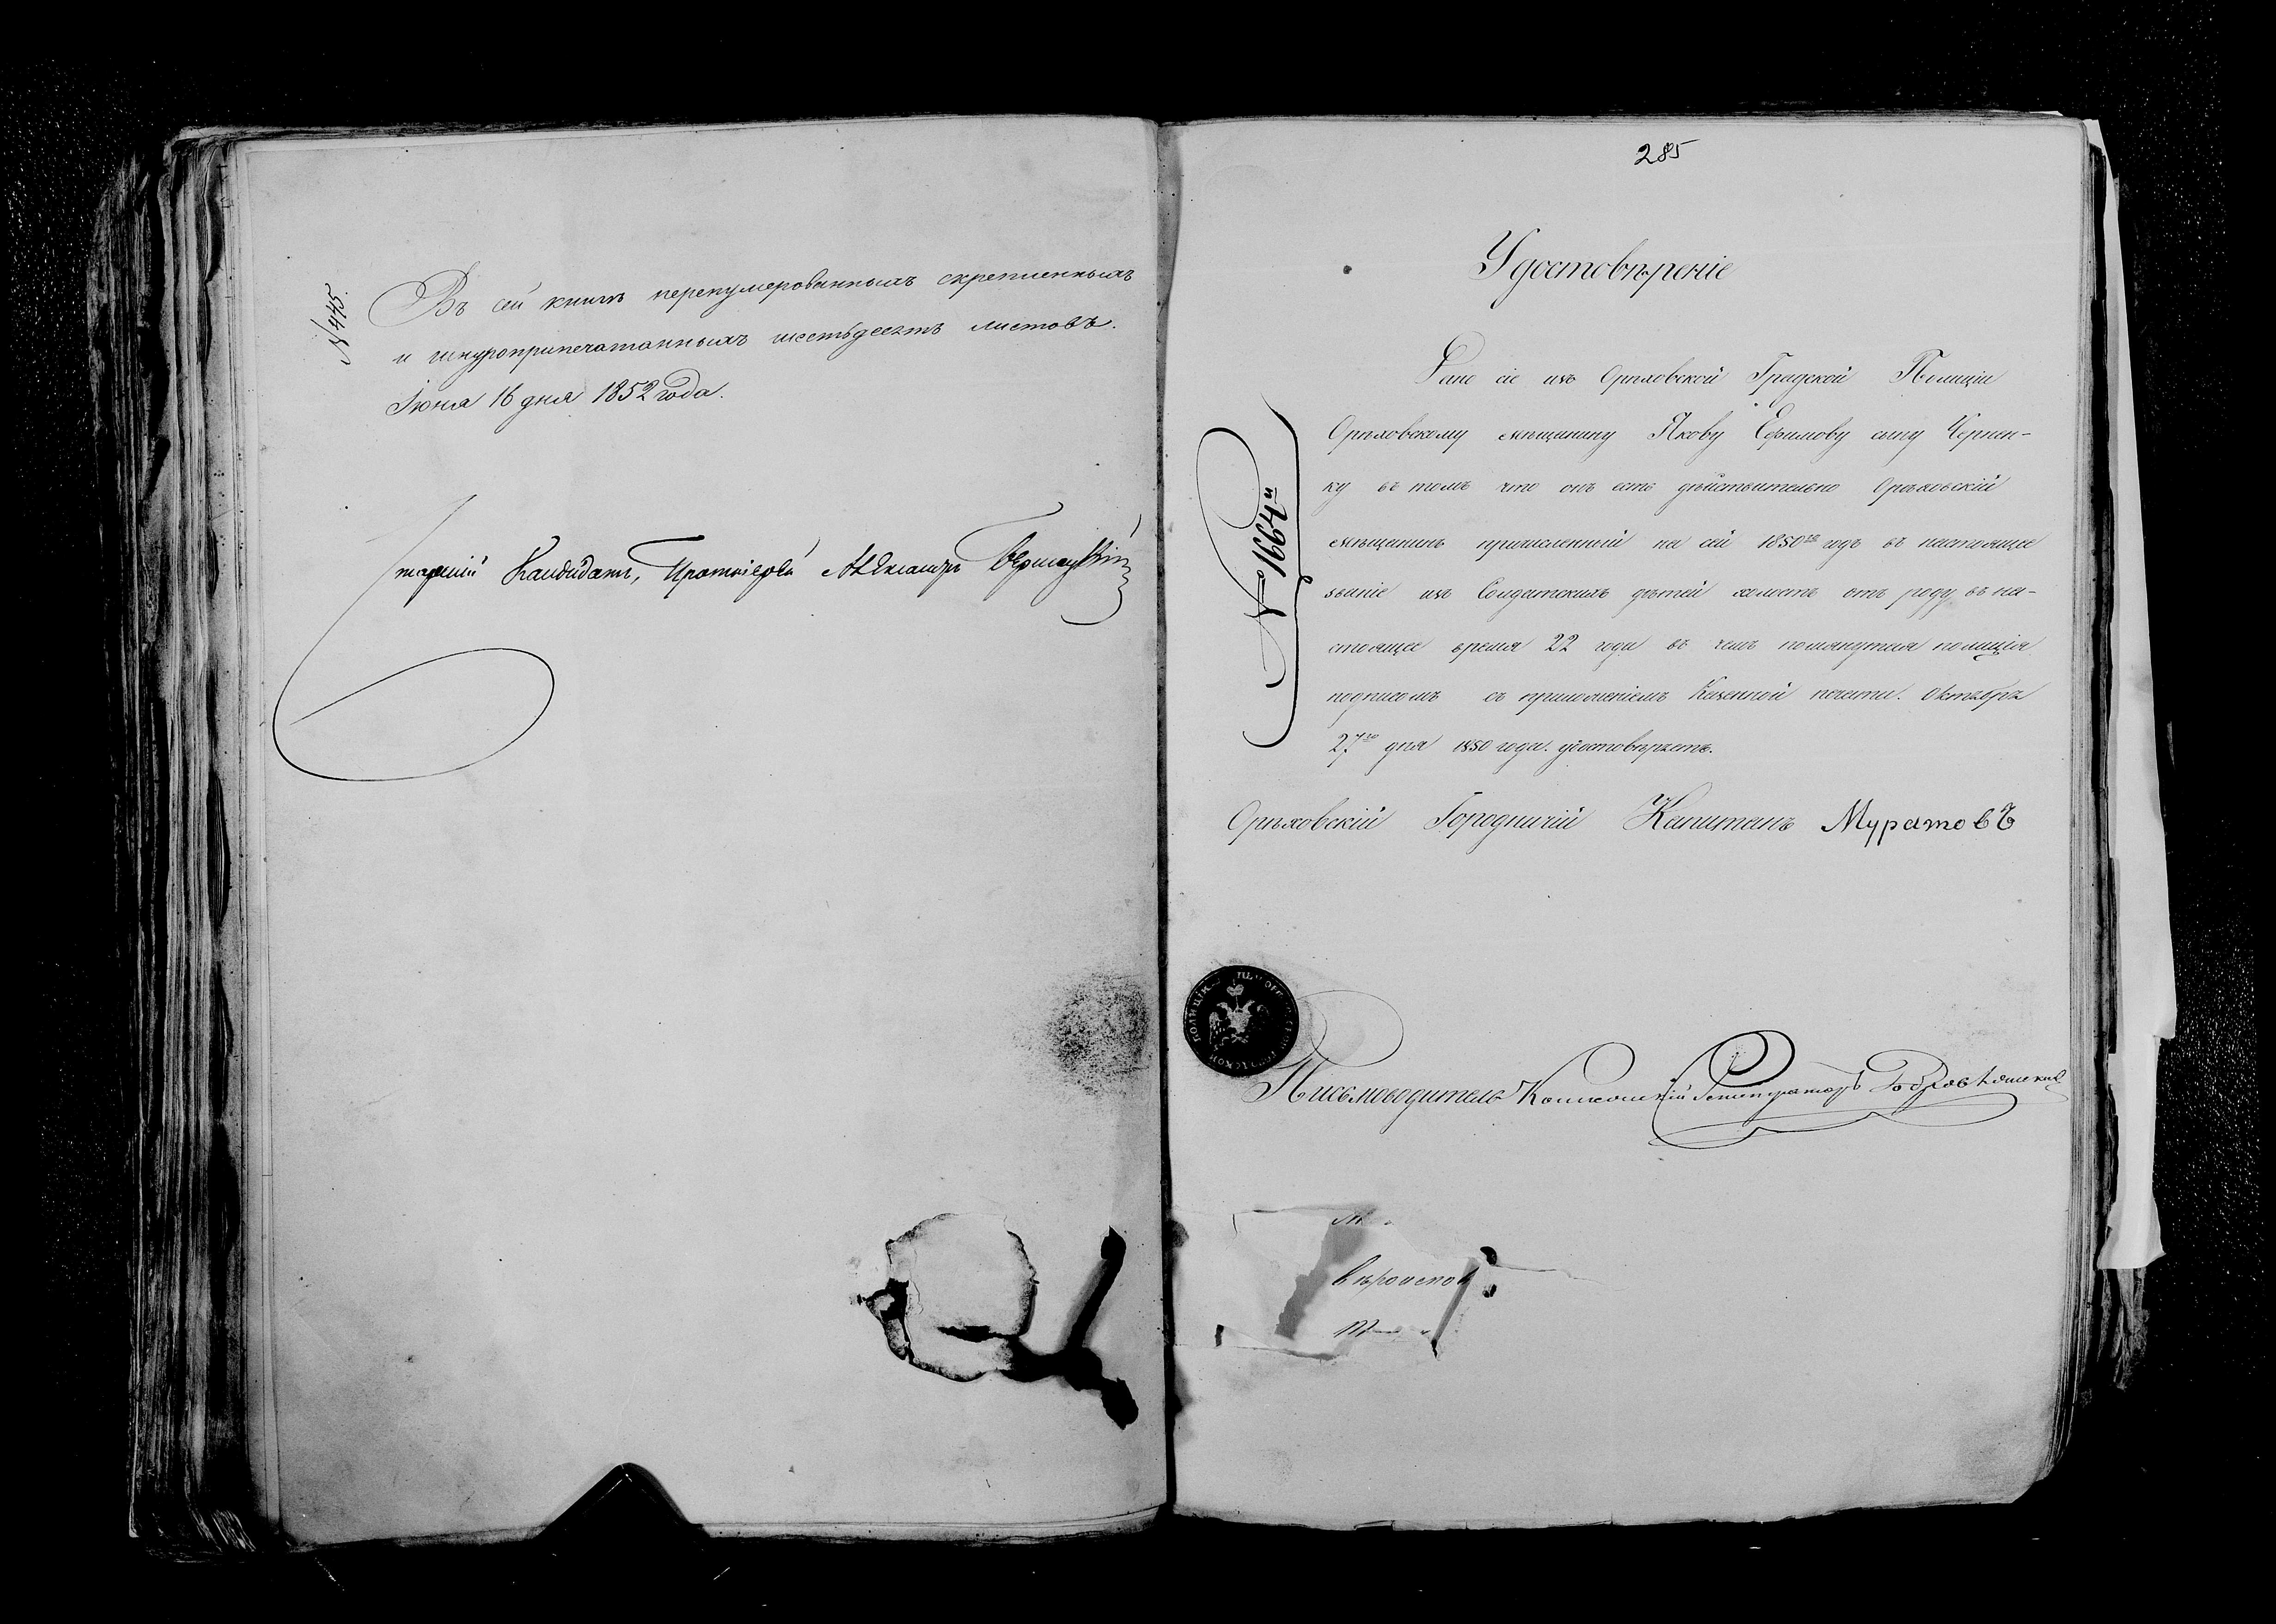 № 445.
Въ сей книгѣ перенумерованныхъ скрепленныхъ
и шнуроприпечатанныхъ шестьдесятъ листовъ.
Іюня 16 дня 1852 года.
Кандидатъ, Протоіерей Александръ
285
Удостовѣреніе
№ 1664й
Дано сіе изъ Орѣховской Градской Полиціи
Орѣховскому мѣщанину Якову Ефимову сыну Чернен-
ку въ томъ что онъ есть дѣйствительно Орѣховскій
мѣщанинъ причисленный на сей 1850й годъ въ настоящее
званіе изъ Солдатскихъ дѣтей холостъ отъ роду въ на-
стоящее время 22 года въ чемъ помянутая полиція
подписомъ съ приложеніемъ Казенной печати. Октября
27го дня 1850 года. удостовѣряетъ.
Орѣховскій Городничій Капитанъ Муратовъ
Письмоводитель